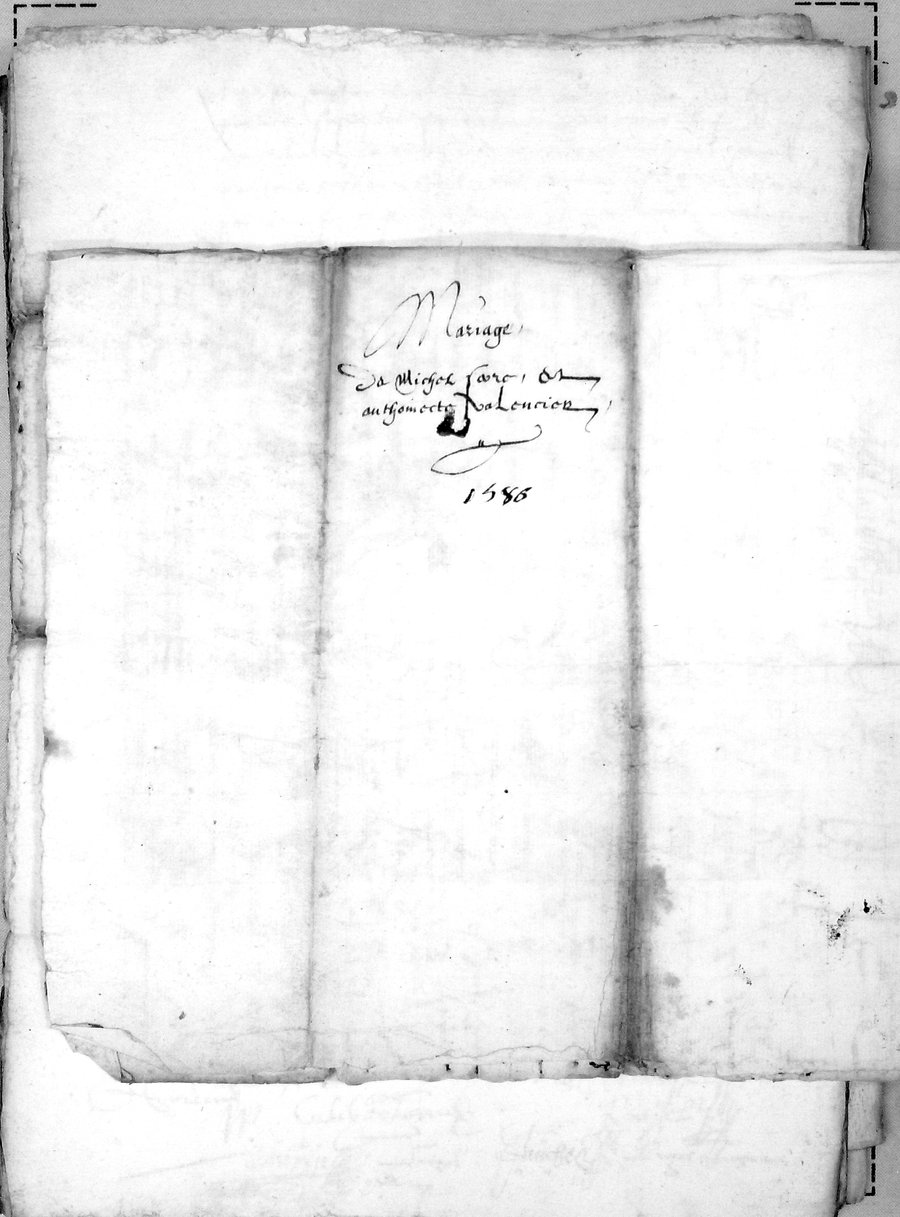 Mariage,
De Michel favre, Et
anthoinecte Valencier,
1586